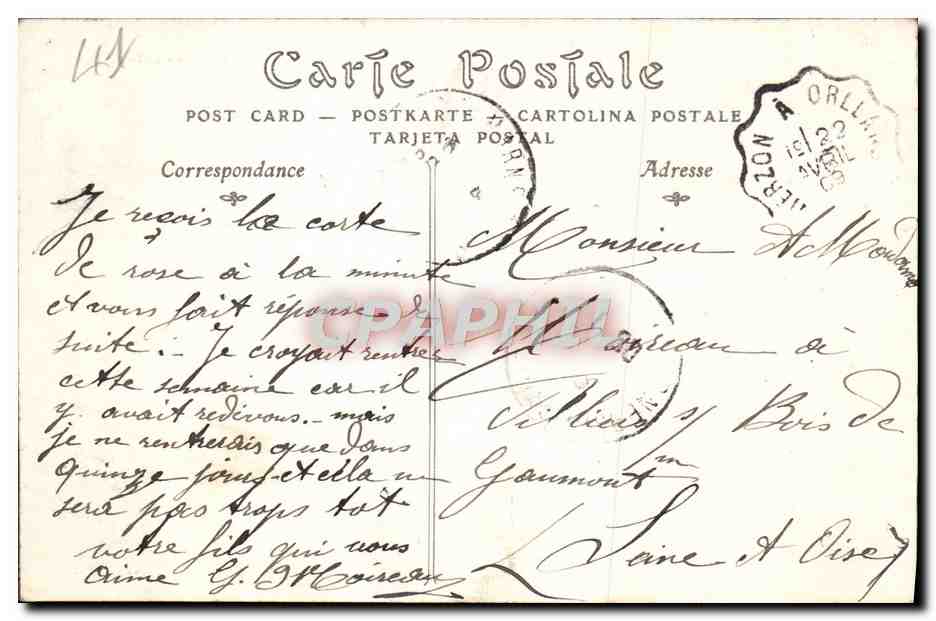 41
Carte Postale
POST CARD — POSTKARTE — CARTOLINA POSTALE
TARJETA POSTAL
Correspondance
Adresse
VIERZON A ORLEANS
Je reçois la carte
de rose à la minute
et vous fait réponse de
suite. Je croyait rentrer
cette semaine car il
y avait redivous. mais
je ne rentrerais que dans
quinze jours et cela ne
sera pas trops tot
votre fils qui vous
aime G. Moireau
Monsieur A Madame
Moireau à
Villiers s/ Bois de
Gaumont
Seine et Oise
CPAPHIL